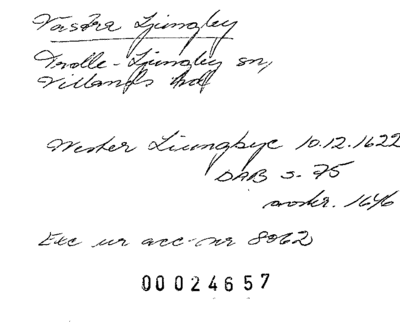 Västra Ljungby
Trolle-Ljungby sn,
Villands hd
Wester Liungbye 10.12.1622
DAB s. 75
avskr. 1646
Exc ur acc-nr 8962
00024657